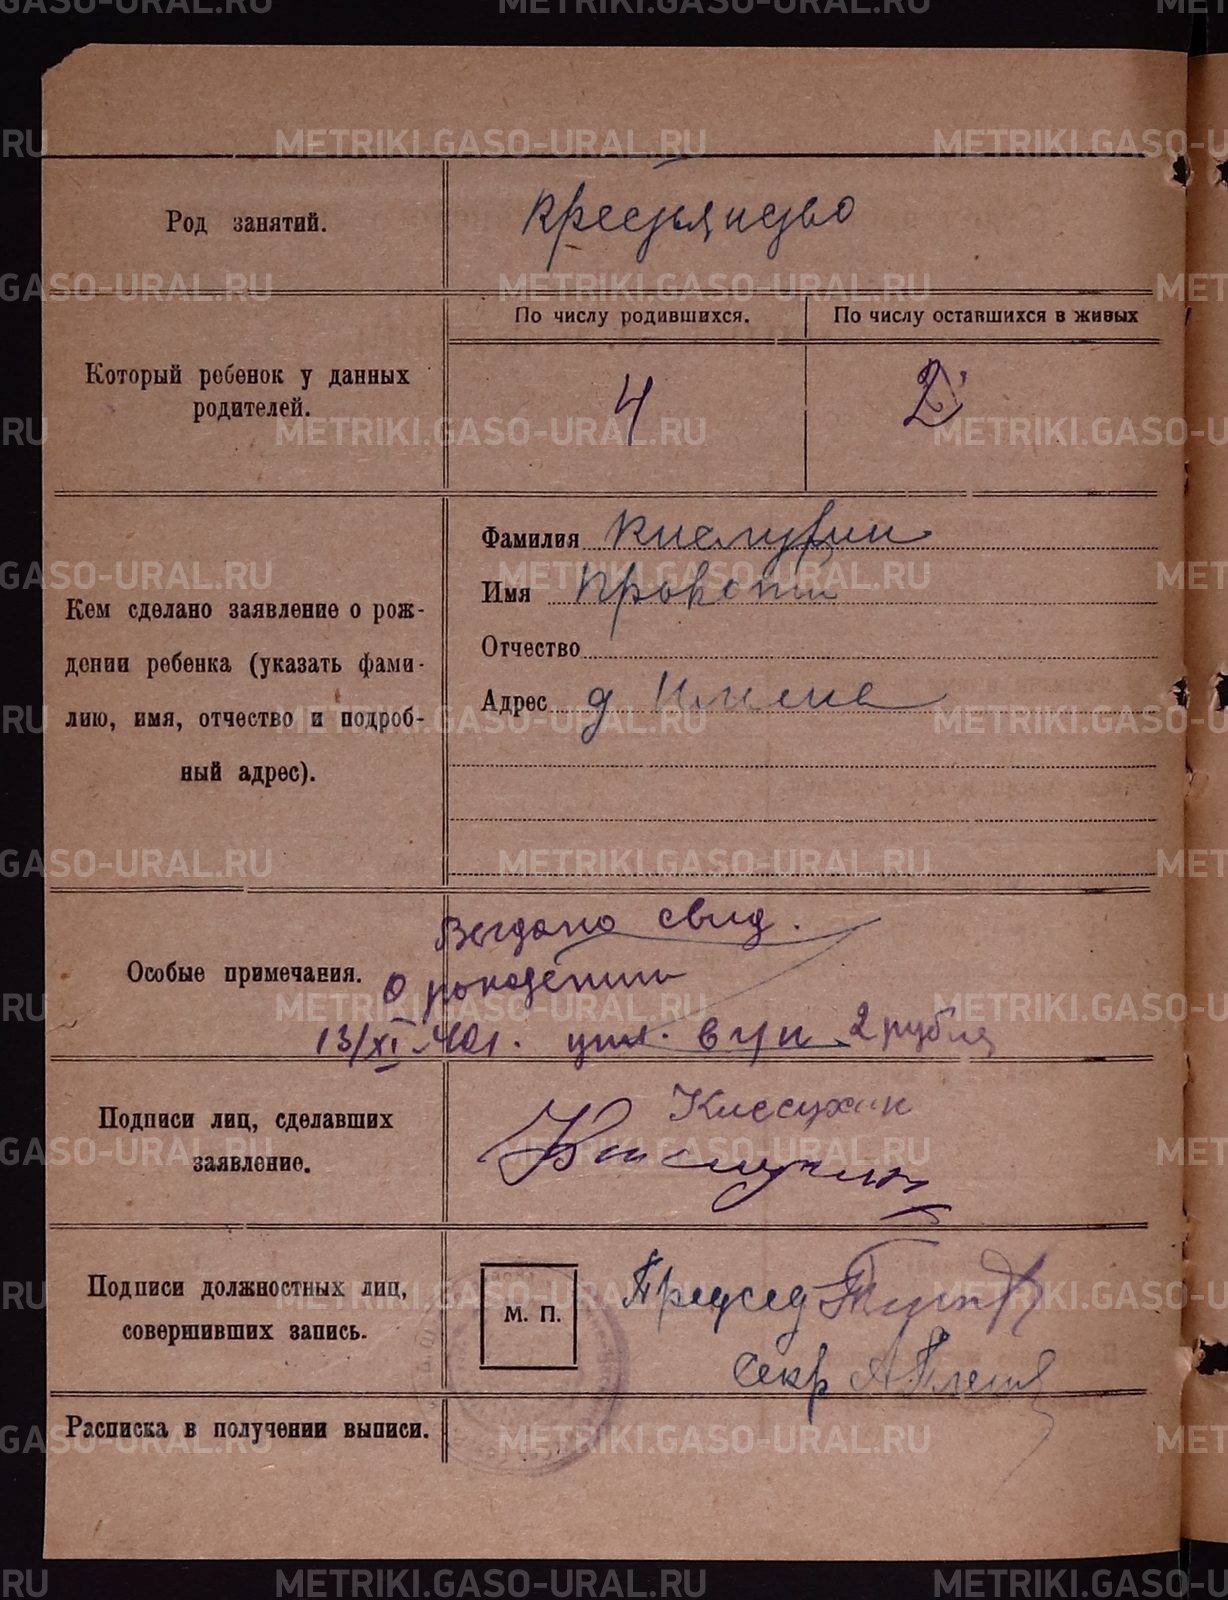 METRIKI.GASO-URAL.RU
Род занятий.
крестьянство
Который ребенок у данных
родителей.
По числу родившихся.
По числу оставшихся в живых
4
2
Кем сделано заявление о рож-
дении ребенка (указать фами-
лию, имя, отчество и подроб-
ный адрес).
Фамилия Кислухин
Имя Прокопий
Отчество
Адрес д
Особые примечания.
Выдано свид.
О рождении
13/XI-40г. упл. 2 рубля
Подписи лиц, сделавших
заявление.
Кислухин
Подписи должностных лиц,
совершивших запись.
М. П.
Председ
Секр
Расписка в получении выписи.